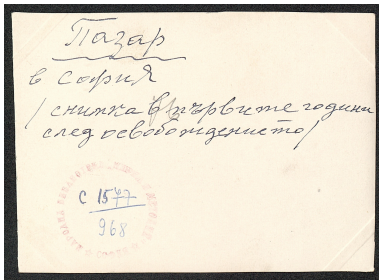 Пазар
в София
/ снимка в първите години
след освобождението /
С 1577
968